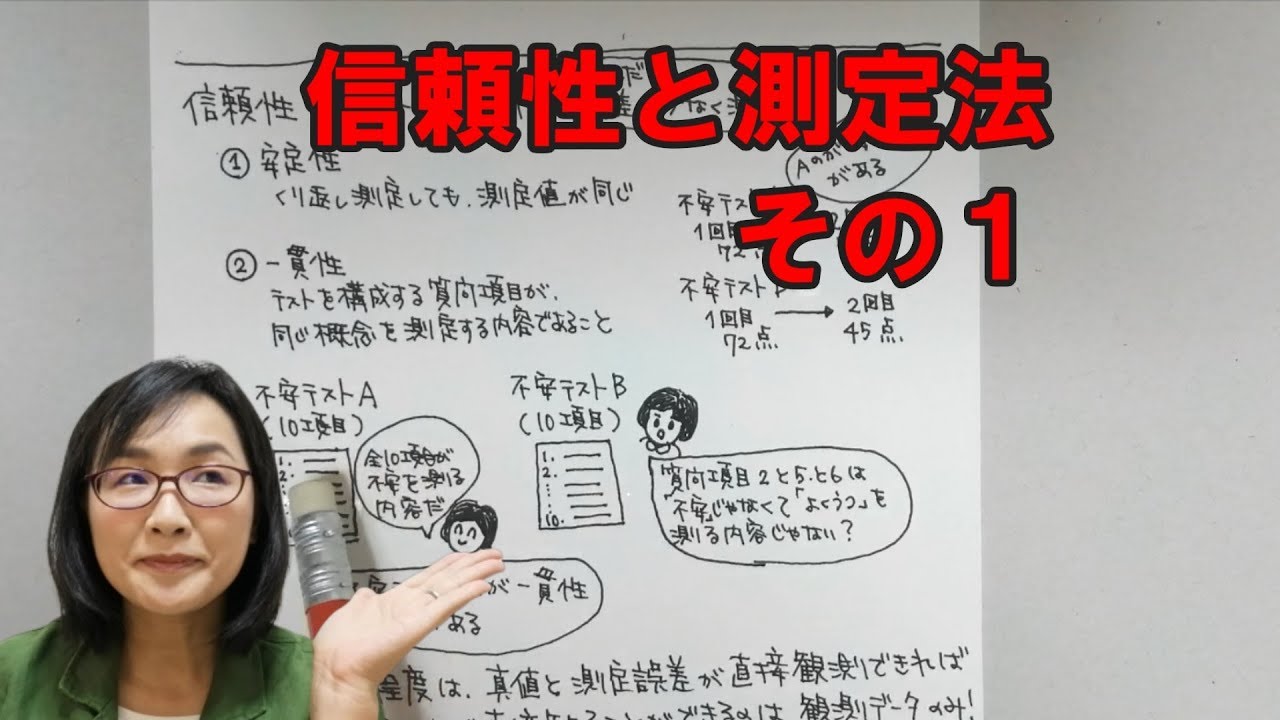 信頼性と測定法
その1
信頼性
なく測
① 安定性
くり返し測定しても、測定値が同じ
Aのが
がある
不安テスト
1回目
72点
② 一貫性
テストを構成する質問項目が、
同じ概念を測定する内容であること
不安テスト
1回目
72点
2回目
45点
不安テストA
(10項目)
1.
2.
全10項目が
不安を測る
内容だ
不安テストB
(10項目)
1.
2.
10.
質問項目2と5と6は
「不安」じゃなくて「よくうつ」を
測る内容じゃない?
が一貫性
ある
程度は、真値と測定誤差が直接観測できれば
できるのは、観測データのみ!